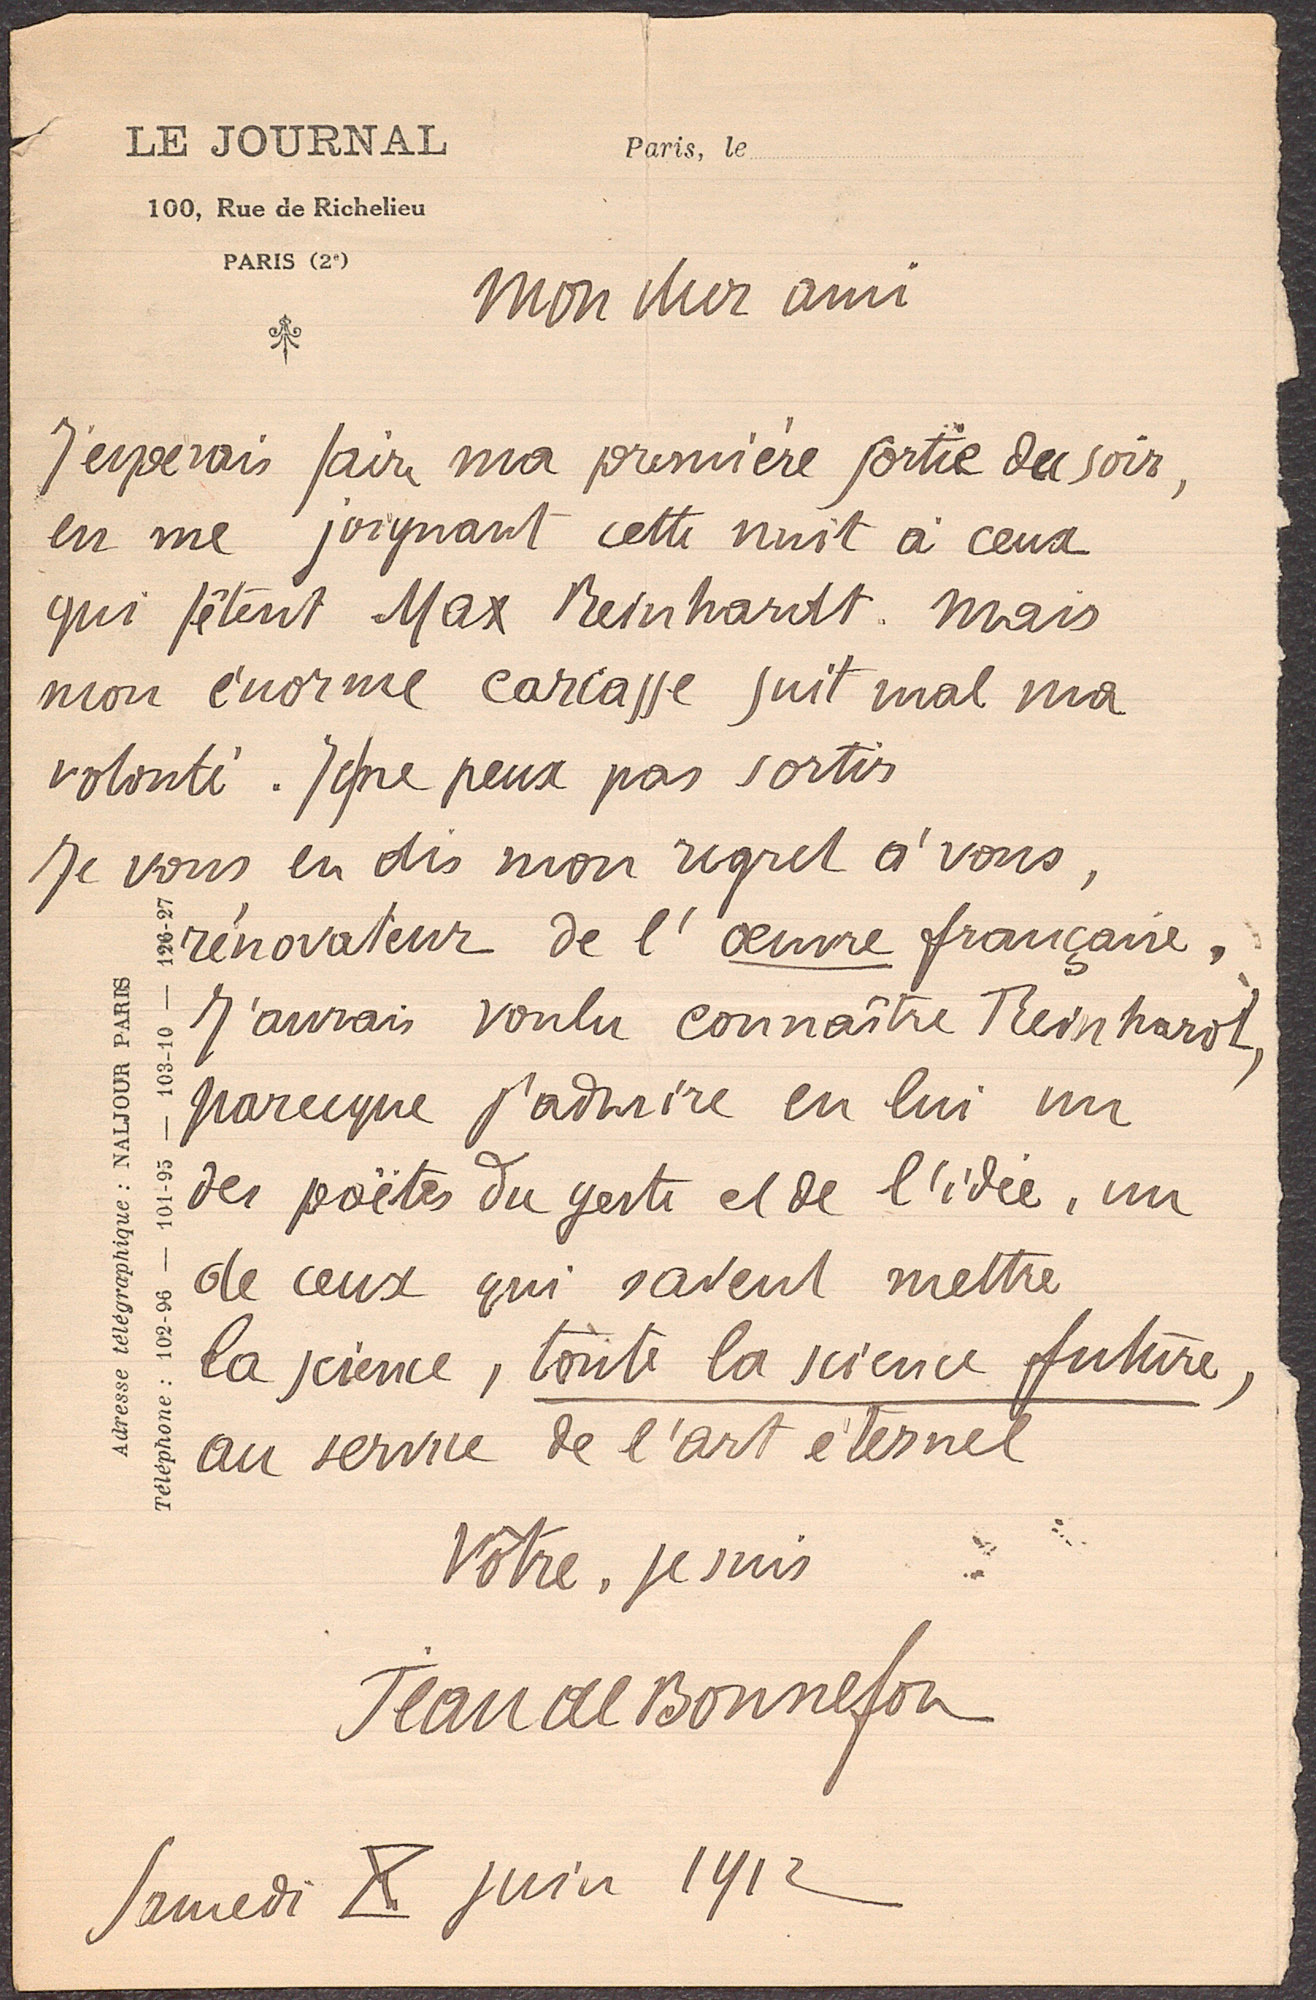 LE JOURNAL
100, Rue de Richelieu
PARIS (2e)
Paris, le
Mon cher ami
J'esperais faire ma première sortie du soir,
en me joignant cette nuit à ceux
qui fêtent Max Reinhardt. Mais
mon énorme carcasse suit mal ma
volonté. Je ne peux pas sortir
Je vous en dis mon regret à vous,
rénovateur de l'œuvre française.
J'aurais voulu connaître Reinhardt,
parceque j'admire en lui un
des poëtes du geste et de l'idée, un
de ceux qui savent mettre
la science, toute la science future,
au service de l'art éternel
Vôtre, je suis
Jean de Bonnefon
Samedi X juin 1912
Adresse télégraphique : NALJOUR PARIS
Téléphone : 102-96 — 101-95 — 103-10 — 126-27